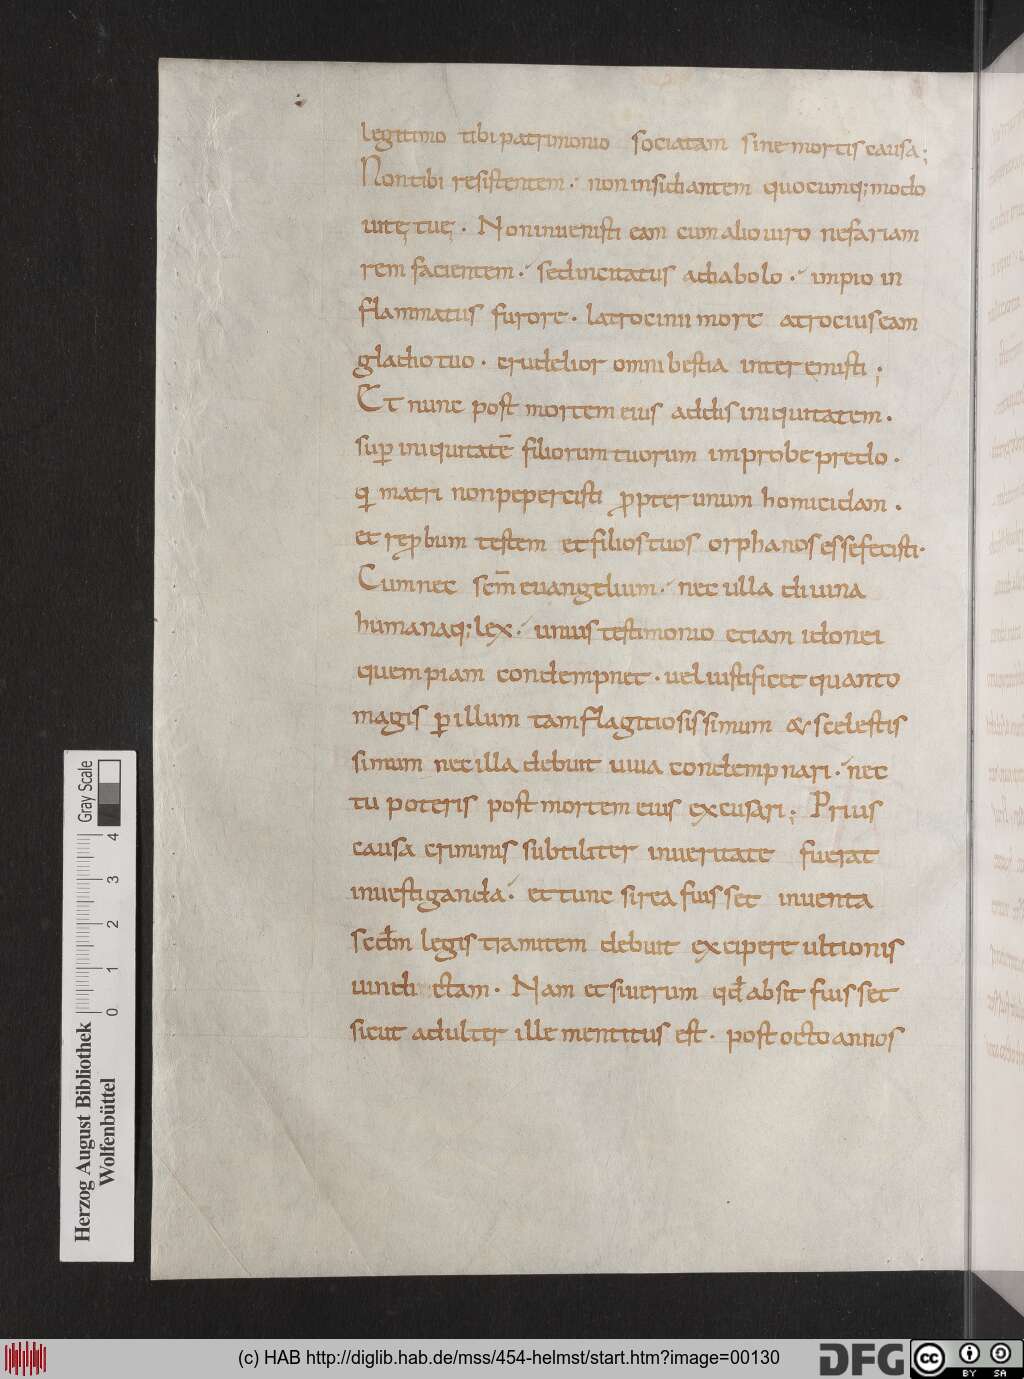 legitimo tibi patrimonio sociatam sine mortis causa;
Non tibi resistentem · non insidiantem quocumq; modo
uitę tuę · Non inuenisti eam cum alio uiro nefariam
rem facientem · sed incitatus a diabolo · impio in
flammatus furore · latrocinii more atrocius eam
gladio tuo · crudelior omni bestia interemisti;
Et nunc post mortem eius addis iniquitatem ·
sup̄ iniquitatē filiorum tuorum improbe predo ·
qi matri non pepercisti p̄pter unum homicidam ·
et rep̄bum testem et filios tuos orphanos esse fecisti ·
Cum nec scm̄ euangelium · nec ulla diuina
humanaq; lex · unius testimonio etiam idonei
quempiam condempnet · uel iustificet quanto
magis p̄ illum tam flagitiosissimum & scelestis
simum nec illa debuit uiua condempnari · nec
tu poteris post mortem eius excusari; Prius
causa criminis subtiliter in ueritate fuerat
inuestiganda · et tunc si rea fuisset inuenta
secdm̄ legis tramitem debuit excipere ultionis
uindictam · Nam et si uerum qđ absit fuisset
sicut adulter ille mentitus est · post octo annos
Gray Scale
4
3
2
1
0
Herzog August Bibliothek
Wolfenbüttel
(c) HAB http://diglib.hab.de/mss/454-helmst/start.htm?image=00130
DFG
cc
BY SA